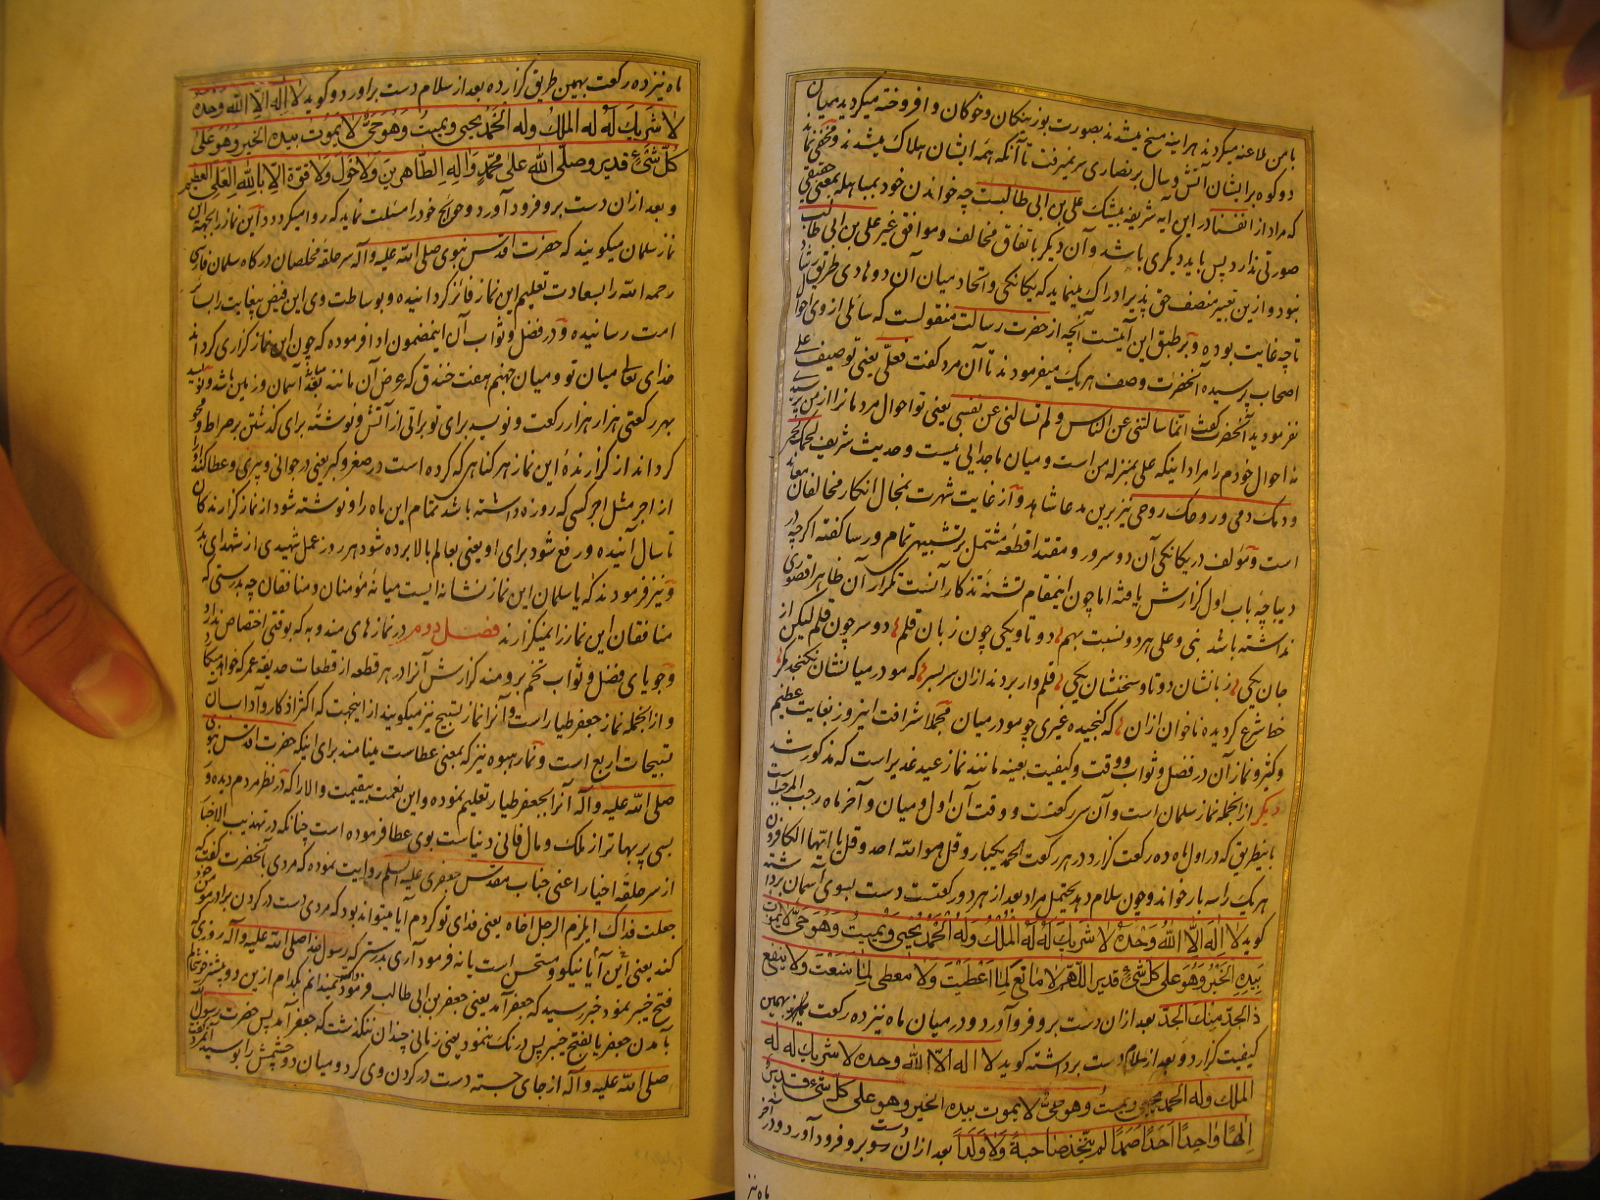 با من ملاعنه میکردند هراینه مسخ میشدند بصورت بوزینکان و خوکان و افروخته میکردید میان
دو کوه برایشان اتش و سال بر نصاری سر نمیرفت تا آنکه همه ایشان هلاک میشدند و مخفی نماند
که مراد از انفسنا در این ایه شریفه بیشک علی بن ابی طالبست چه خواندن خود بمباهله بمعنی حقیقی
صورتی ندارد پس باید دیکری باشد و آن دیکر باتفاق مخالف و موافق غیر علی بن ابی طالب
نبود و ازین تعبیر منصف حق پذیر ادراک مینماید که یکانکی و اتحاد میان آن دو هادی طریق
تا چه غایت بوده و بر طبق این آیتست آنچه از حضرت رسالت منقولست که سائلی از وی احوال
اصحاب پرسیده آنحضرت وصف هر یک میفرمودند تا آن مرد کفت فعلی یعنی توصیف علی
نفرمودید آنحضرت کفت انما سالتنی عن الناس و لم تسالنی عن نفسی یعنی تو احوال مردمانرا از من پرسیدی
نه احوال خودم را مراد اینکه علی بمنزله من است و میان ما جدایی نیست و حدیث شریف لحمک لحمی
و دمک دمی و روحک روحی نیز برین مدعا شاهد و از غایت شهرت بمجال انکار مخالفان
است و مؤلف در یکانکی آن دو سرور و مقتدا قطعه مشتمل بر تشبیهی تمام و رسا کفته اکرچه در
دیباچه باب اول کزارش یافته اما چون اینمقام تشنه تذکار آنست تکرار آن ظاهرا قصوری
نداشته باشد نبی و علی هر دو نسبت بهم دو تا و یکی چون زبان قلم دو سر چون قلم لیکن از
جان یکی زبانشان دو تا و سخنشان یکی قلم وار بردند ازان سر بسر که مو در میانشان نکنجد مکر
خط شرع کردیده ناخوان ازان که کنجیده غیری چو مو در میان مجملا شرافت اینروز بغایت عظیم
و کثیر و نماز آن در فضل و ثواب و وقت و کیفیت بعینه مانند نماز عید غدیر است که مذکور شد
دیکر از انجمله نماز سلمان است و آن سی رکعتست و وقت آن اول و میان و آخر ماه رجب المرجب
باینطریق که در اول ماه ده رکعت کزارد در هر رکعت الحمد یکبار و قل هو الله احد و قل یا ایها الکافرون
هر یک را سه بار خواند و چون سلام دهد یحتمل مراد بعد از هر دو رکعتست دست بسوی آسمان برداشته
کوید لا اله الا الله وحده لا شریک له له الملک و له الحمد یحیی و یمیت و هو حی لا یموت
بیده الخیر و هو علی کل شیء قدیر اللهم لا مانع لما اعطیت و لا معطی لما منعت و لا ینفع
ذا الجد منک الجد بعد ازان دست برو فرو آورد و در میان ماه نیز ده رکعت نماز بهمین
کیفیت کزارد و بعد از سلام دست برداشته کوید لا اله الا الله وحده لا شریک له له
الملک و له الحمد یحیی و یمیت و هو حی لا یموت بیده الخیر و هو علی کل شیء قدیر
الها واحدا احدا صمدا لم یتخذ صاحبة و لا ولدا بعد ازان دست برو فرود آورد و در آخر
ماه نیز
ماه نیز ده رکعت بهمین طریق کزارده بعد از سلام دست براورد و کوید لا اله الا الله وحده
لا شریک له له الملک و له الحمد یحیی و یمیت و هو حی لا یموت بیده الخیر و هو علی
کل شیء قدیر و صلی الله علی محمد و اله الطاهرین و لا حول و لا قوة الا بالله العلی العظیم
و بعد ازان دست برو فرود آورد و حوایج خود را مسئلت نماید که روا میکردد و این نماز را بجهة آن
نماز سلمان میکویند که حضرت اقدس نبوی صلی الله علیه و آله سر حلقه مخلصان درکاه سلمان فارسی
رحمه الله را بسعادت تعلیم این نماز فائز کردانیده و بوساطت وی این فیض بیغایت را به
امت رسانیده و در فضل و ثواب آن اینمضمون ادا فرموده که چون این نماز کزاری کرداند
خدای تعالی میان تو و میان جهنم هفت خندق که عرض آن مانند بعد میانه آسمان و زمین باشد و نویسد
بهر رکعتی هزار هزار رکعت و نویسد برای تو براتی از آتش و نوشته برای کذشتن بر صراط و محو
کرداند از کزارنده این نماز هر کناهی که کرده است در صغر و کبر یعنی در جوانی و پیری و عطا کند
از اجر مثل اجر کسی که روزه داشته باشد تمام این ماه را و نوشته شود از نماز کزارندکان
تا سال آینده و رفع شود برای او یعنی بعالم بالا برده شود هر روز عمل شهیدی از شهدای بدر
و نیز فرمودند که یا سلمان این نماز نشانه ایست میانه مؤمنان و منافقان چه بدرستی که
منافقان این نماز را نمیکزارند فصل دوم در نمازهای مندوبه که بوقتی اختصاص ندارد
و جویای فضل و ثواب تخم برومند کزارش آنرا در هر قطعه از قطعات حدیقه عمر که خواهد میکارد
و از انجمله نماز جعفر طیار است و آنرا نماز تسبیح نیز میکویند از اینجهت که اکثر اذکار و آداب آن
تسبیحات اربع است و نماز حبوه نیز که بمعنی عطاست مینامند برای اینکه حضرت اقدس نبوی
صلی الله علیه و آله آنرا بجعفر طیار تعلیم نموده و این نعمت بیقیمت والا را که در نظر مردم دیده ور
بسی پر بها تر از ملک و مال فانی دنیاست بوی عطا فرموده است چنانکه در تهذیب الاخبار
از سر حلقه اخیار اعنی جناب مقدس جعفری علیه السلم روایت نموده که مردی بآنحضرت کفت که
جعلت فداک ایلزم الرجل اخاه یعنی فدای تو کردم آیا میتواند بود که مردی دست در کردن برادر مؤمن خود
کند یعنی این آیا نیکو و مستحسن است یا نه فرمود آری بدرستی که رسول خدا صلی الله علیه و آله روزی که
فتح خیبر نمود خبر رسید که جعفر آمد یعنی جعفر بن ابی طالب فرمود و الله نمیدانم بکدام ازین دو بیشتر خوشحالم
بآمدن جعفر یا بفتح خیبر پس درنک ننمود یعنی زمانی چندان نکذشت که جعفر آمد پس حضرت رسول الله
صلی الله علیه و آله از جای جسته دست در کردن وی کرد و میان دو چشمش را بوسید آنمرد کفت